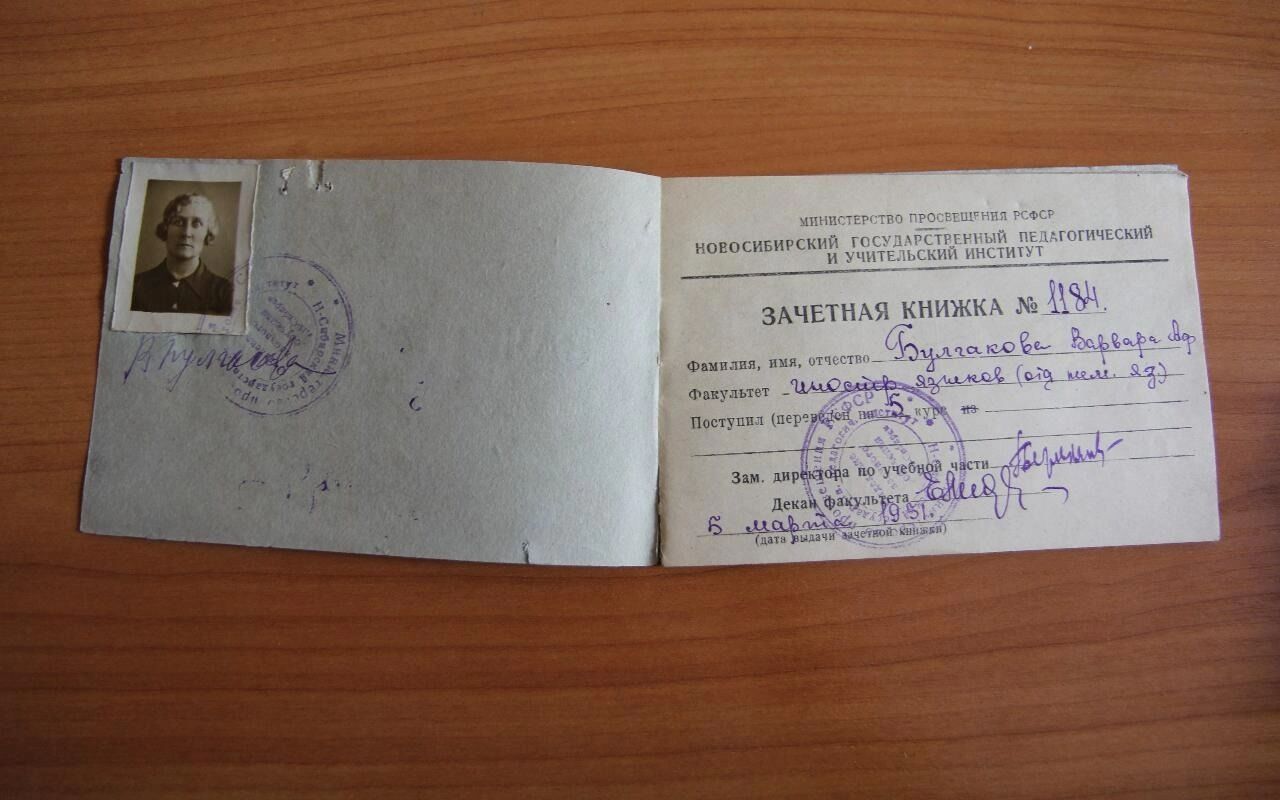 В Булгакова
МИНИСТЕРСТВО ПРОСВЕЩЕНИЯ РСФСР
НОВОСИБИРСКИЙ ГОСУДАРСТВЕННЫЙ ПЕДАГОГИЧЕСКИЙ
И УЧИТЕЛЬСКИЙ ИНСТИТУТ
ЗАЧЕТНАЯ КНИЖКА № 1184.
Фамилия, имя, отчество Булгакова Варвара Аф
Факультет иностр языков (отд нем. яз)
Поступил (переведен на 5 курс из
Зам. директора по учебной части
Декан факультета
5 марта 1951.
(дата выдачи зачетной книжки)